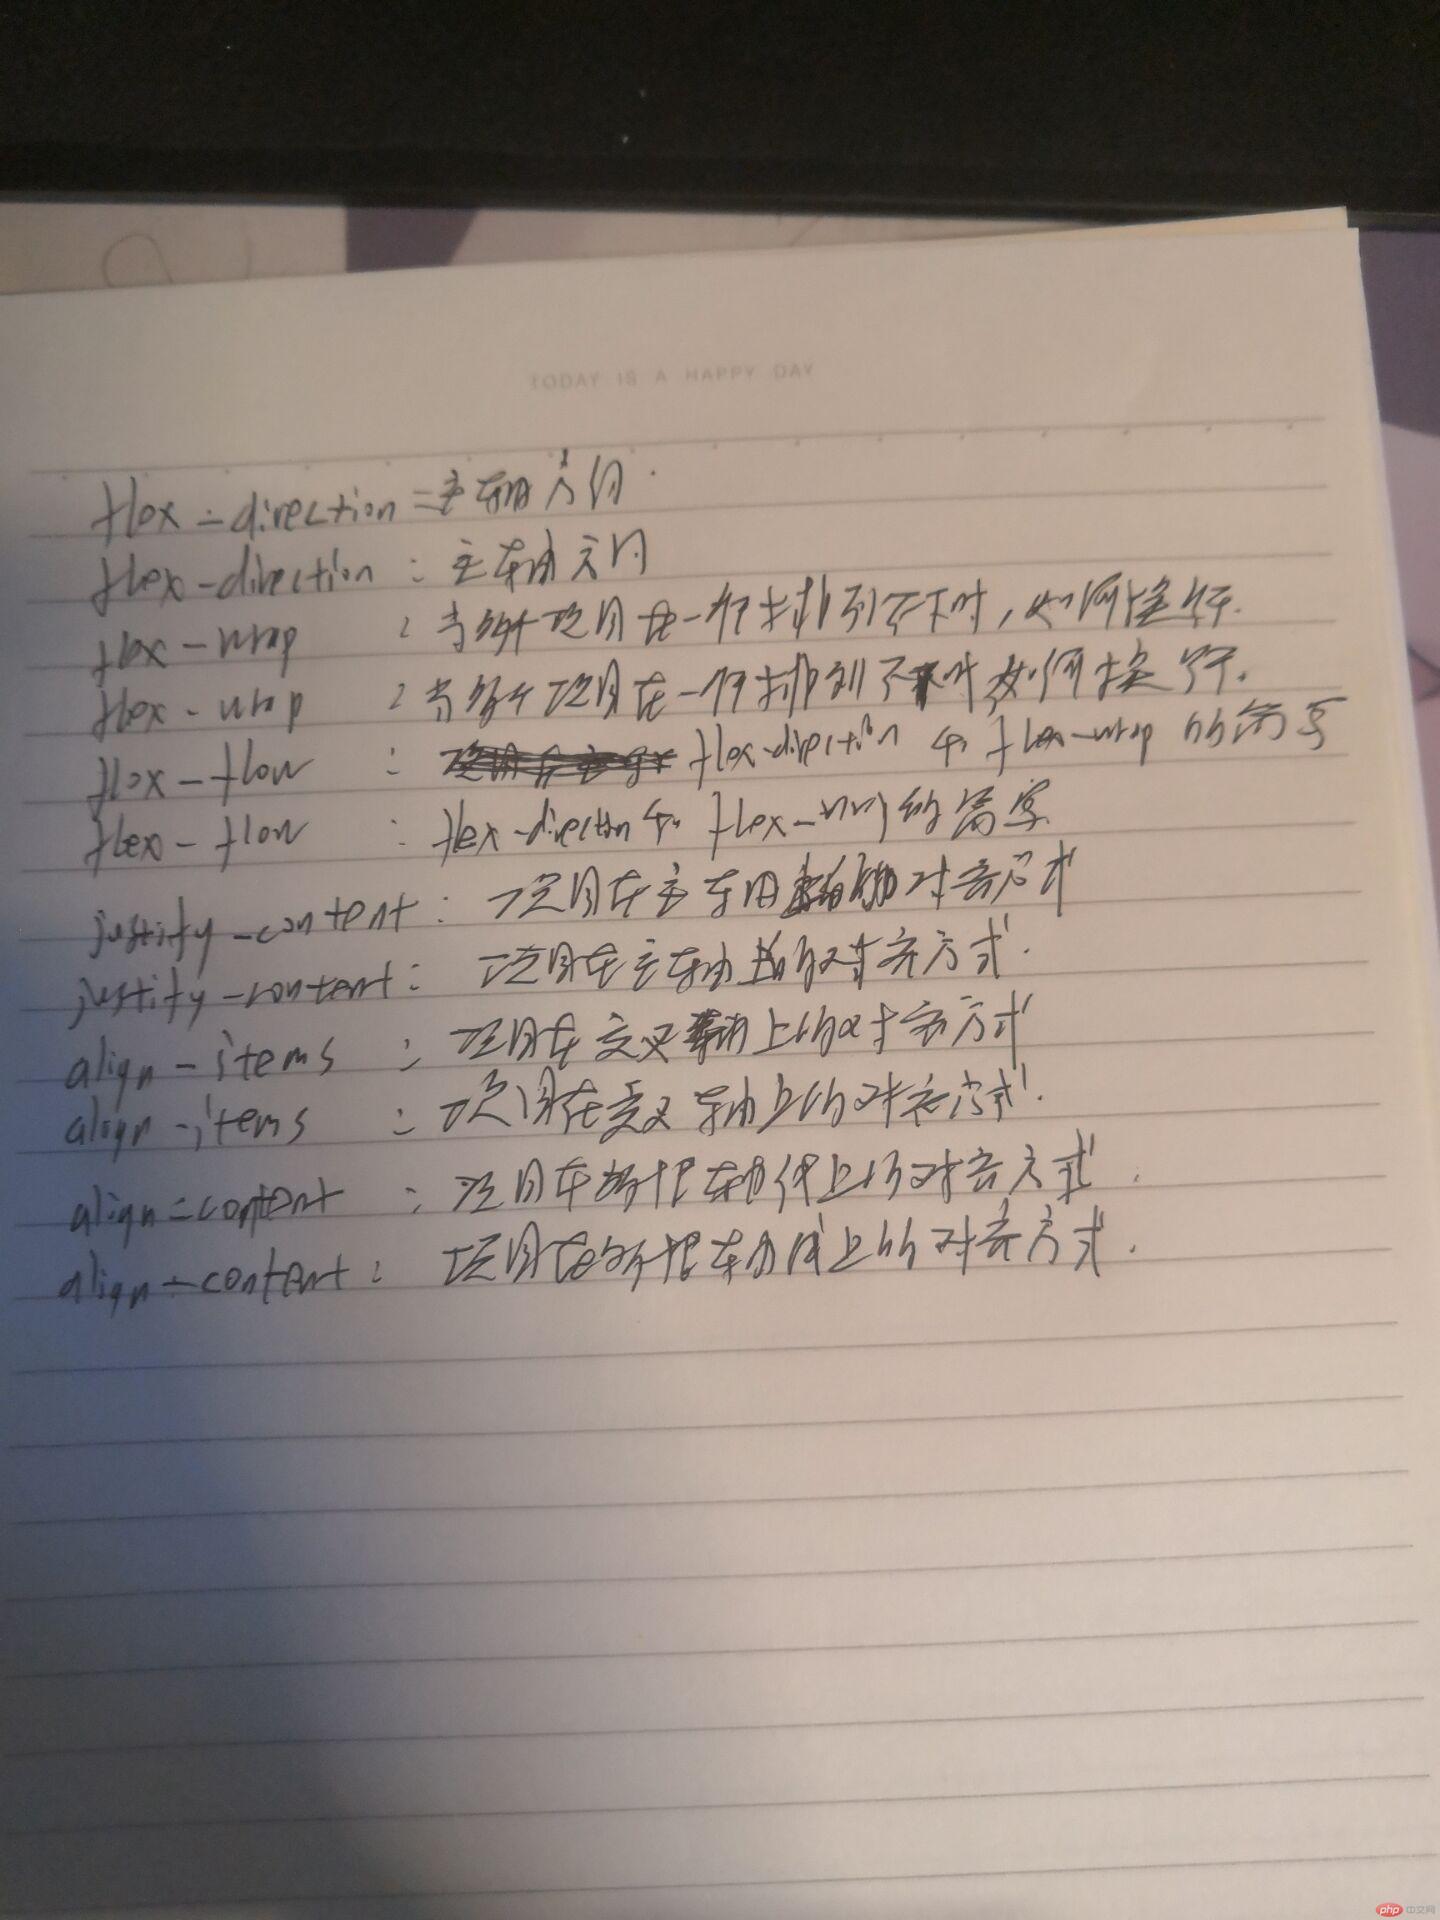 TODAY IS A HAPPY DAY
flex-direction：主轴方向.
flex-direction：主轴方向
flex-wrap：当多个项目在一行排列不下时，如何换行.
flex-wrap：当多个项目在一行排列不下时如何换行.
flex-flow：flex-direction和flex-wrap的简写
flex-flow：flex-direction和flex-wrap的简写
justify-content：项目在主轴的对齐方式
justify-content：项目在主轴上的对齐方式.
align-items：项目在交叉轴上的对齐方式
align-items：项目在交叉轴上的对齐方式.
align-content：项目在多根轴线上的对齐方式.
align-content：项目在多根轴线上的对齐方式.
php 中文网